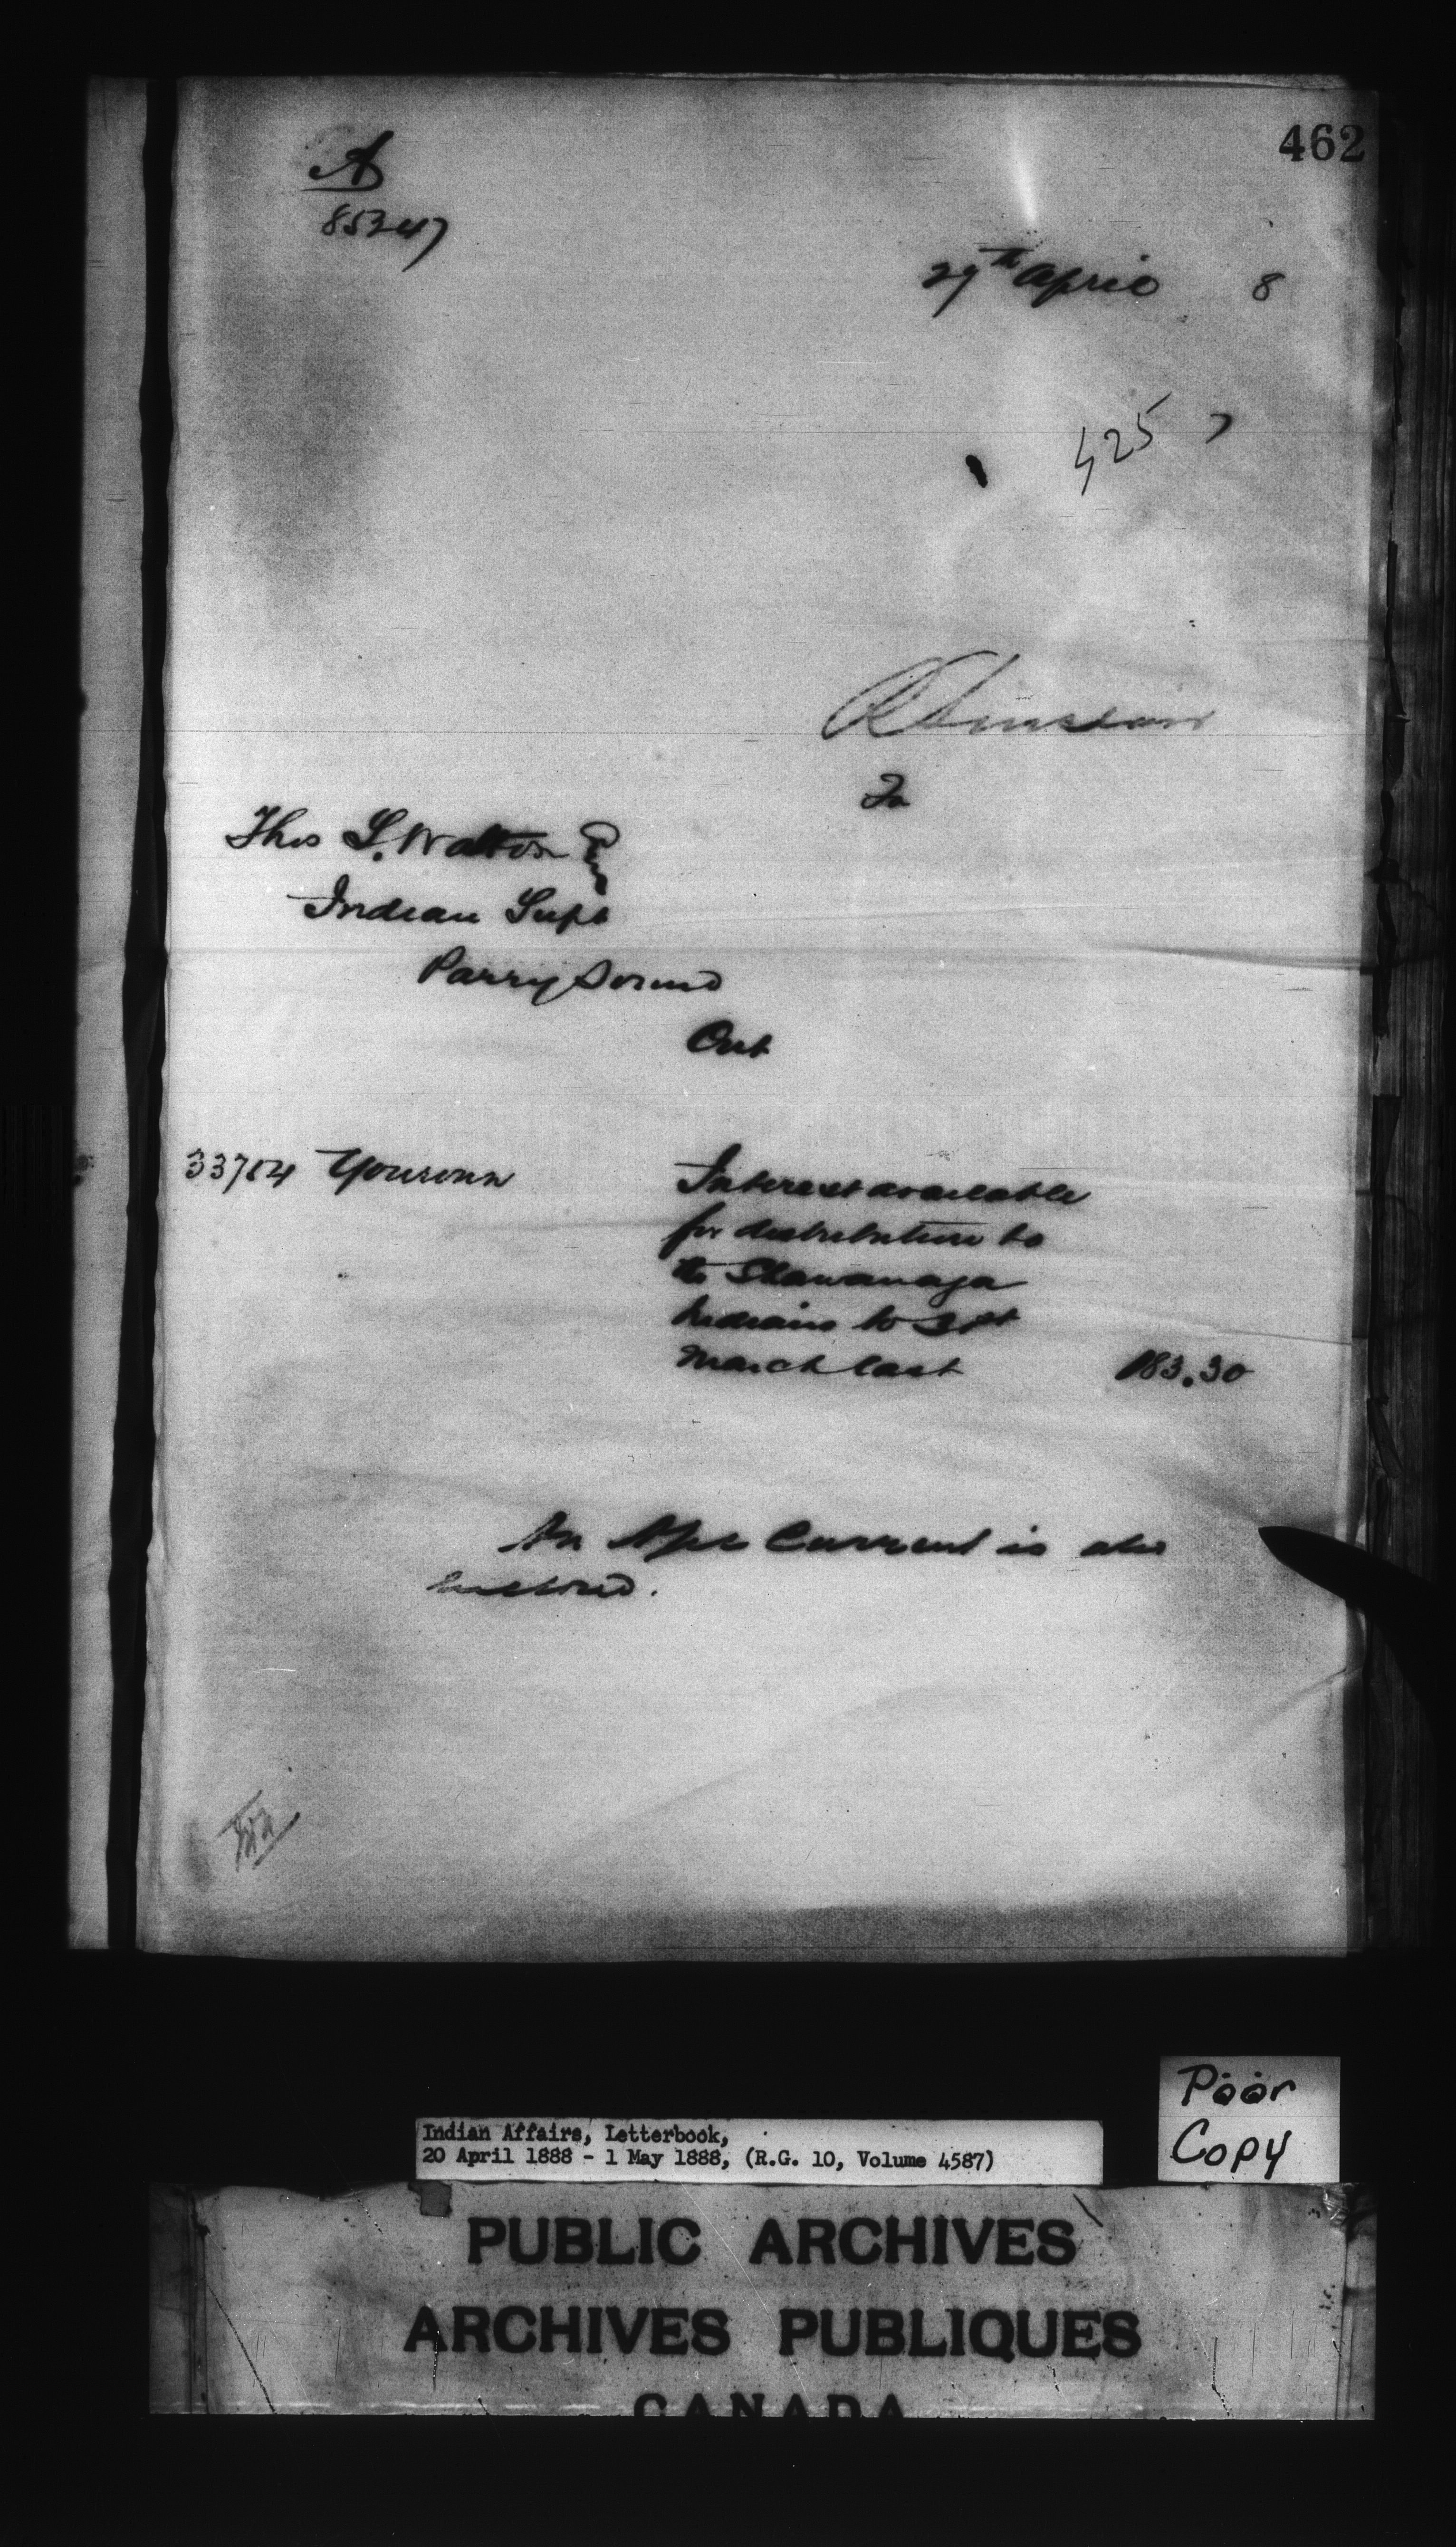 462
A
85247
27th April 8
425 7
R Sinclair
Fr
Thos S. Walton Esq
Indian Supt
Parry Sound
Ont
33784 Yourown
Interest available
for distribution to
the Shawanaga
Indians to 31st
March last 183.30
An Acct Current is also
enclosed.
Poor
Copy
Indian Affairs, Letterbook,
20 April 1888 - 1 May 1888, (R.G. 10, Volume 4587)
PUBLIC ARCHIVES
ARCHIVES PUBLIQUES
CANADA